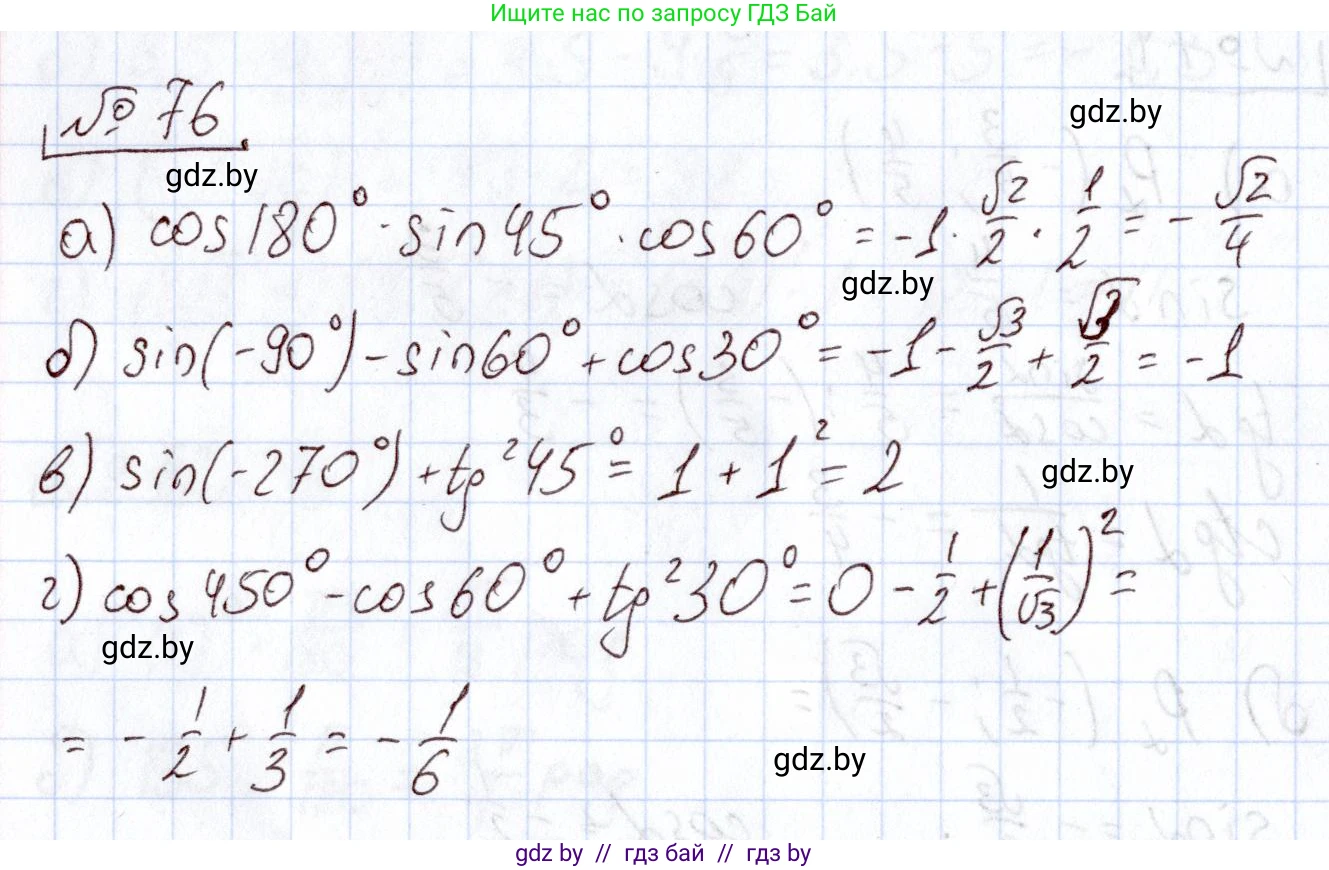 Ищите нас по запросу ГДЗ Бай
№ 76
gdz.by
gdz.by
а) cos 180° · sin 45° · cos 60° = -1 · √2/2 · 1/2 = - √2/4
gdz.by
б) sin(-90°) - sin 60° + cos 30° = -1 - √3/2 + √3/2 = -1
в) sin(-270°) + tg² 45° = 1 + 1² = 2
gdz.by
г) cos 450° - cos 60° + tg² 30° = 0 - 1/2 + (1/√3)² =
gdz.by
= - 1/2 + 1/3 = - 1/6
gdz.by
gdz by // гдз бай // гдз by